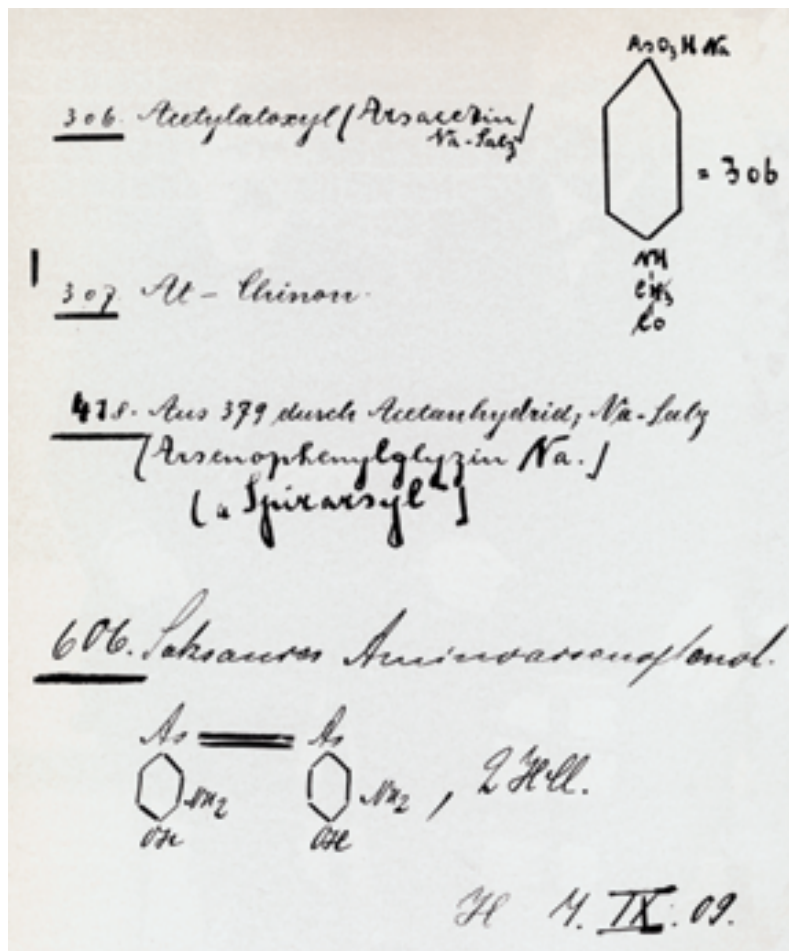 AsO3HNa
306. Acetylatoxyl (Arsacetin)
Na-Salz
= 306
NH
CH3
CO
307. At - Chinon.
418. Aus 379 durch Acetanhydrid, Na-Salz
(Arsenophenylglyzin Na.)
(„Spirarsyl“)
606. Salzsaures Aminoarsenophenol.
As As
NH2 NH2, 2 HCl.
OH OH
IX. 09.